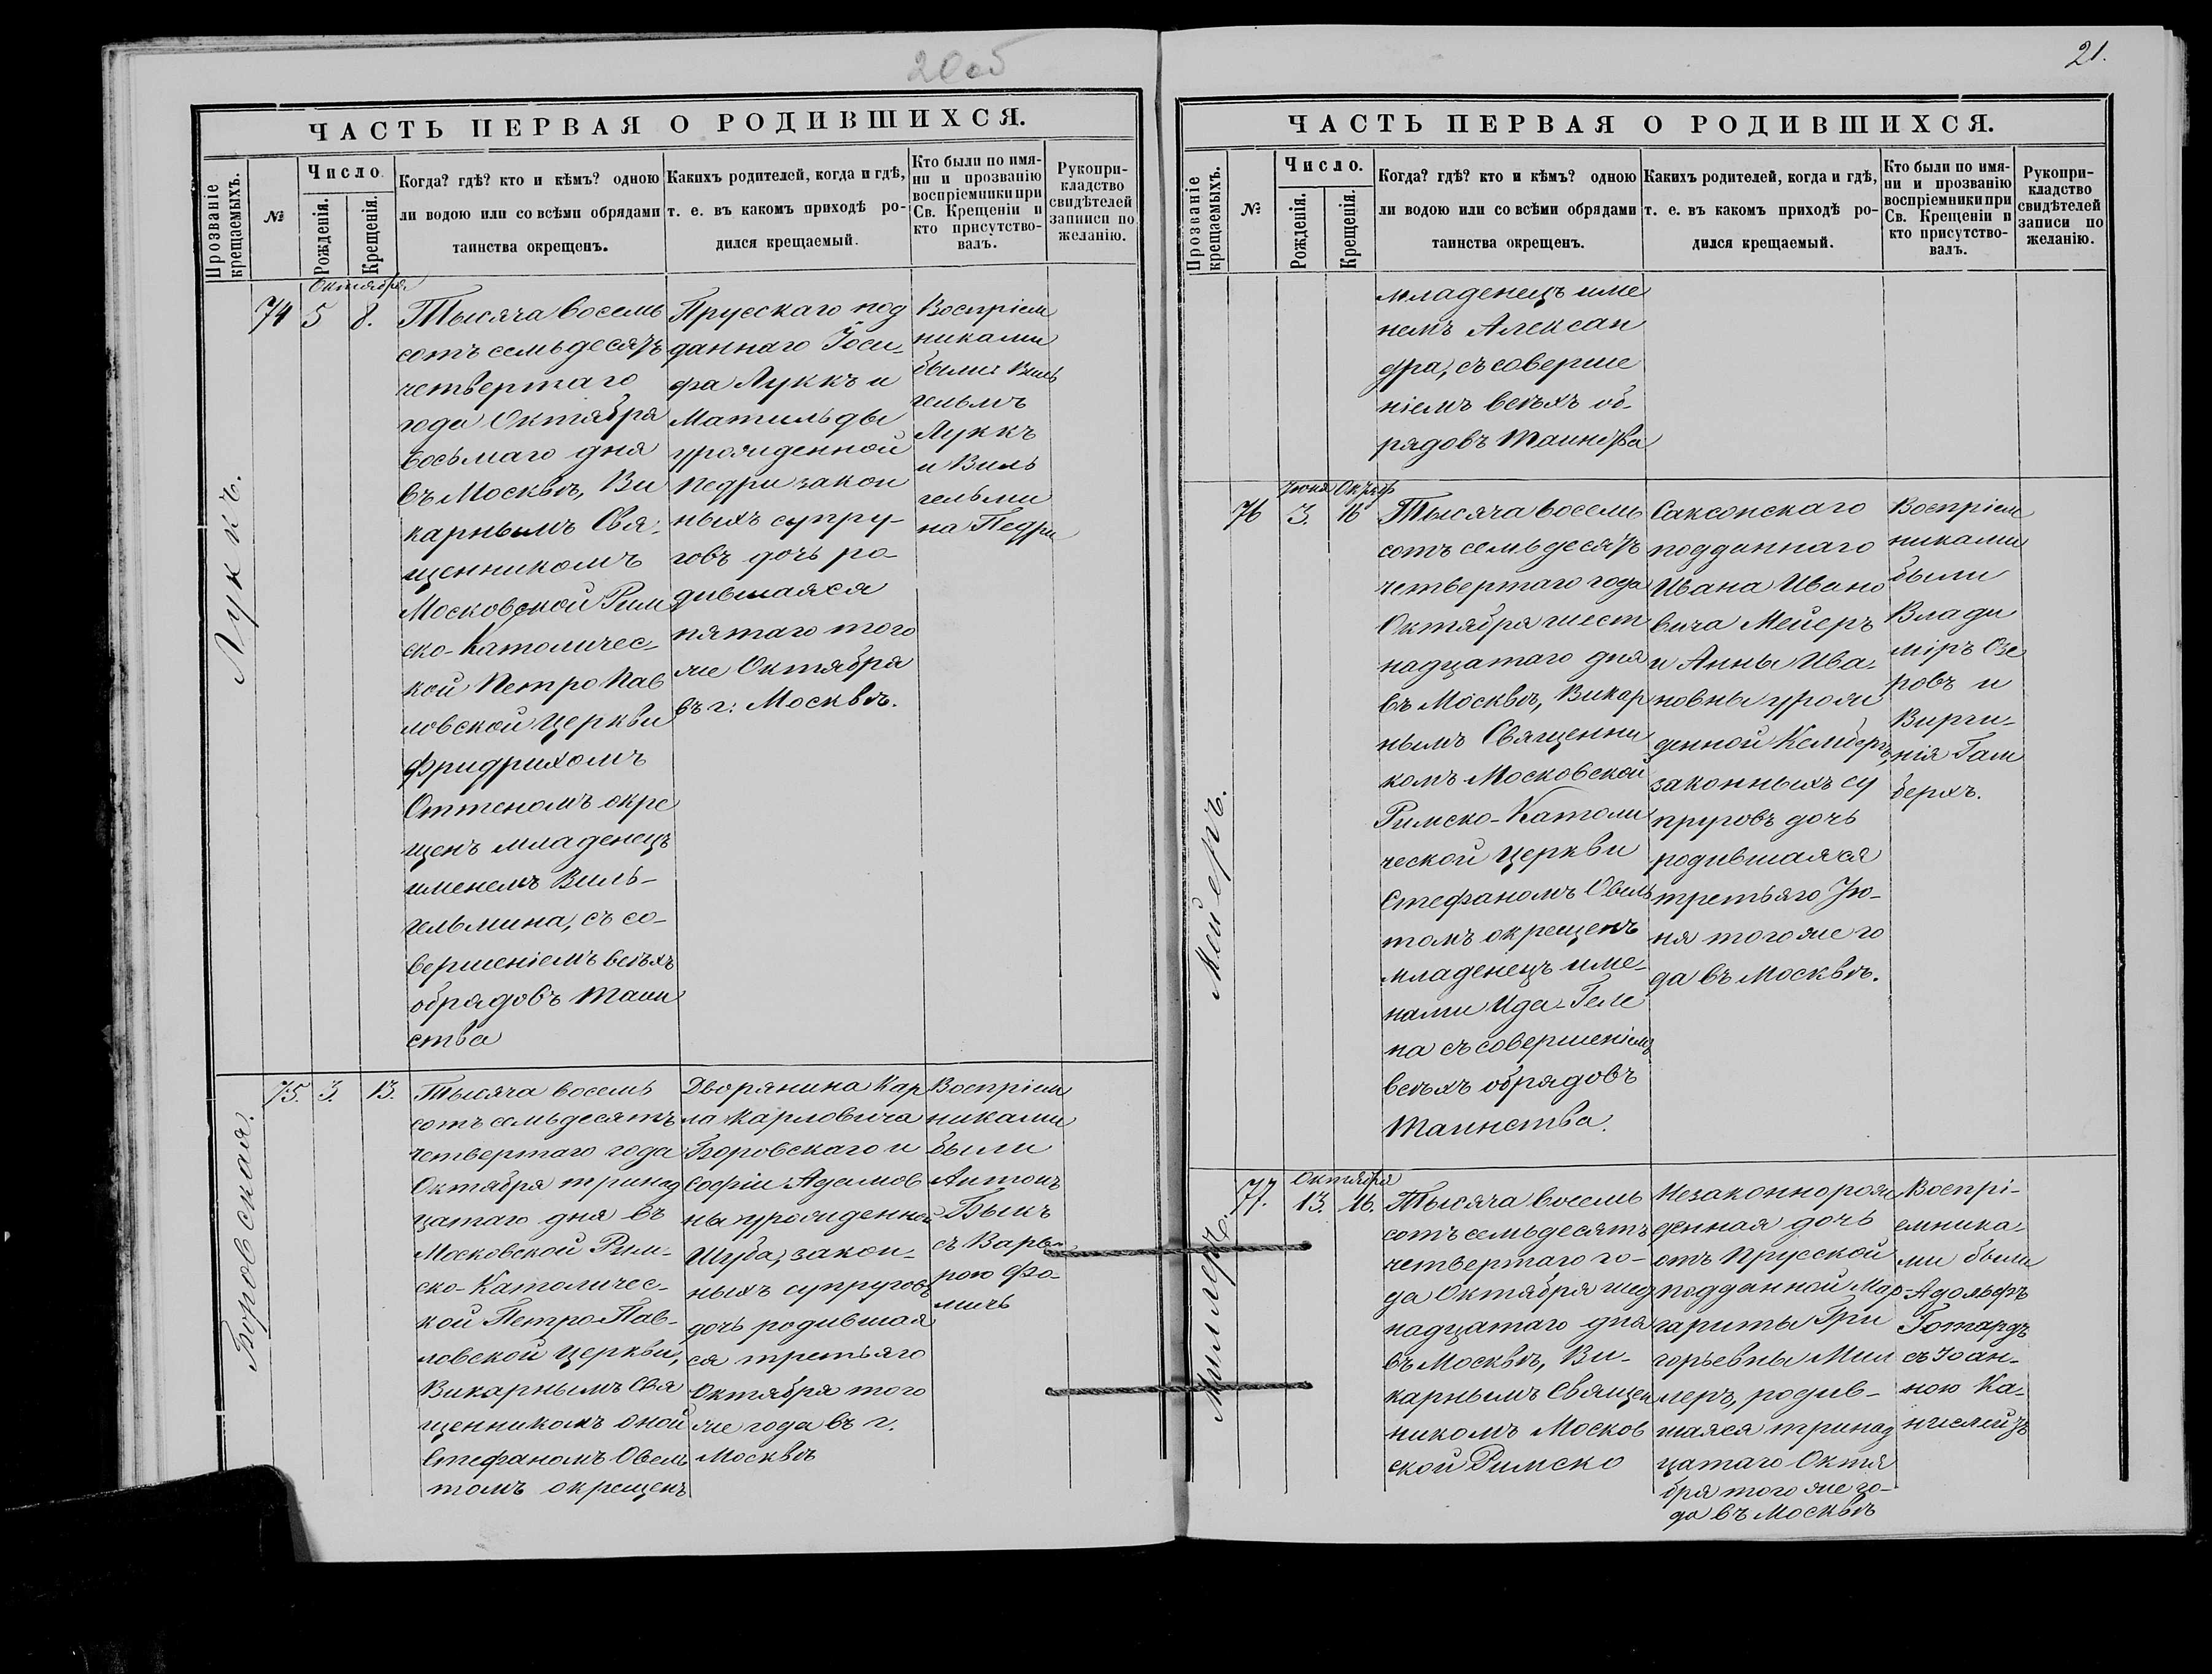 20об
ЧАСТЬ ПЕРВАЯ О РОДИВШИХСЯ.
Прозваніе крещаемыхъ.
№
Число.
Рожденія.
Крещенія.
Когда? гдѣ? кто и кѣмъ? одною
ли водою или со всѣми обрядами
таинства окрещенъ.
Какихъ родителей, когда и гдѣ,
т. е. въ какомъ приходѣ ро-
дился крещаемый.
Кто были по имя-
ни и прозванію
воспріемники при
Св. Крещеніи и
кто присутство-
валъ.
Рукопри-
кладство
свидѣтелей
записи по
желанію.
Луккъ.
Октября
74 5 8.
Тысяча восемь
сотъ семьдесятъ
четвертаго
года Октября
восьмаго дня
въ Москвѣ, Ви
карнымъ Свя-
щенникомъ
Московской Рим
ско-Католичес-
кой Петро Пав
ловской Церкви
Фридрихомъ
Оттеномъ окре
щенъ младенецъ
именемъ Виль-
гельмина, съ со-
вершеніемъ всѣхъ
обрядовъ Таин
ства
Прусскаго под
даннаго Іоси-
фа Луккъ и
Матильды
урожденной
Педри закон
ныхъ супру-
говъ дочь ро-
дившаяся
пятаго того
же Октября
въ г. Москвѣ.
Воспріем
никами
были: Виль
гельмъ
Луккъ
и Виль
гельми
на Педри
Боровская.
75. 3. 13.
Тысяча восемь
сотъ семьдесятъ
четвертаго года
Октября тринад
цатаго дня въ
Московской Рим-
ско-Католичес-
кой Петро-Пав-
ловской Церкви,
Викарнымъ Свя
щенникомъ оной
Стефаномъ Овель
томъ окрещенъ
Дворянина Кар
ла Карловича
Боровскаго и
Софіи Адамов
ны урожденной
Шуба, закон-
ныхъ супруговъ
дочь родившая
ся третьяго
Октября того
же года въ г.
Москвѣ
Воспріем
никами
были
Антонъ
Быкъ
съ Варва
рою Фо-
мичъ
21.
ЧАСТЬ ПЕРВАЯ О РОДИВШИХСЯ.
Прозваніе крещаемыхъ.
№
Число.
Рожденія.
Крещенія.
Когда? гдѣ? кто и кѣмъ? одною
ли водою или со всѣми обрядами
таинства окрещенъ.
Какихъ родителей, когда и гдѣ,
т. е. въ какомъ приходѣ ро-
дился крещаемый.
Кто были по имя-
ни и прозванію
воспріемники при
Св. Крещеніи и
кто присутство-
валъ.
Рукопри-
кладство
свидѣтелей
записи по
желанію.
младенецъ име
немъ Алексан
дра, съ соверше
ніемъ всѣхъ об-
рядовъ Таинства
Мейеръ.
Іюня
76 3. 16
Тысяча восемь
сотъ семьдесятъ
четвертаго года
Октября шест
надцатаго дня
въ Москвѣ, Викар
нымъ Священни
комъ Московской
Римско-Католи
ческой Церкви
Стефаномъ Овель
томъ окрещенъ
младенецъ име-
нами Ида-Геле
на съ совершеніемъ
всѣхъ обрядовъ
Таинства.
Саксонскаго
подданнаго
Ивана Ивано
вича Мейеръ
и Анны Ива-
новны урож
денной
законныхъ су
пруговъ дочь
родившаяся
третьяго Ію-
ня того же го
да въ Москвѣ.
Воспріем
никами
были
Влади
міръ Озе
ровъ и
Вирги-
нія Гам
берхъ.
Миллеръ.
Октября
77. 13. 16.
Тысяча восемь
сотъ семьдесятъ
четвертаго го-
да Октября шед
надцатаго дня
въ Москвѣ, Ви-
карнымъ Священ
никомъ Москов
ской Римско
Незаконнорож
денная дочь
отъ Прусской
подданной Мар-
гариты Гри
горьевны Мил
леръ, родив-
шаяся тринад
цатаго Октя
бря того же го-
да въ Москвѣ
Воспрі-
емника-
ми были
Адольфъ
Готардъ
съ Іоан-
ною Ка-